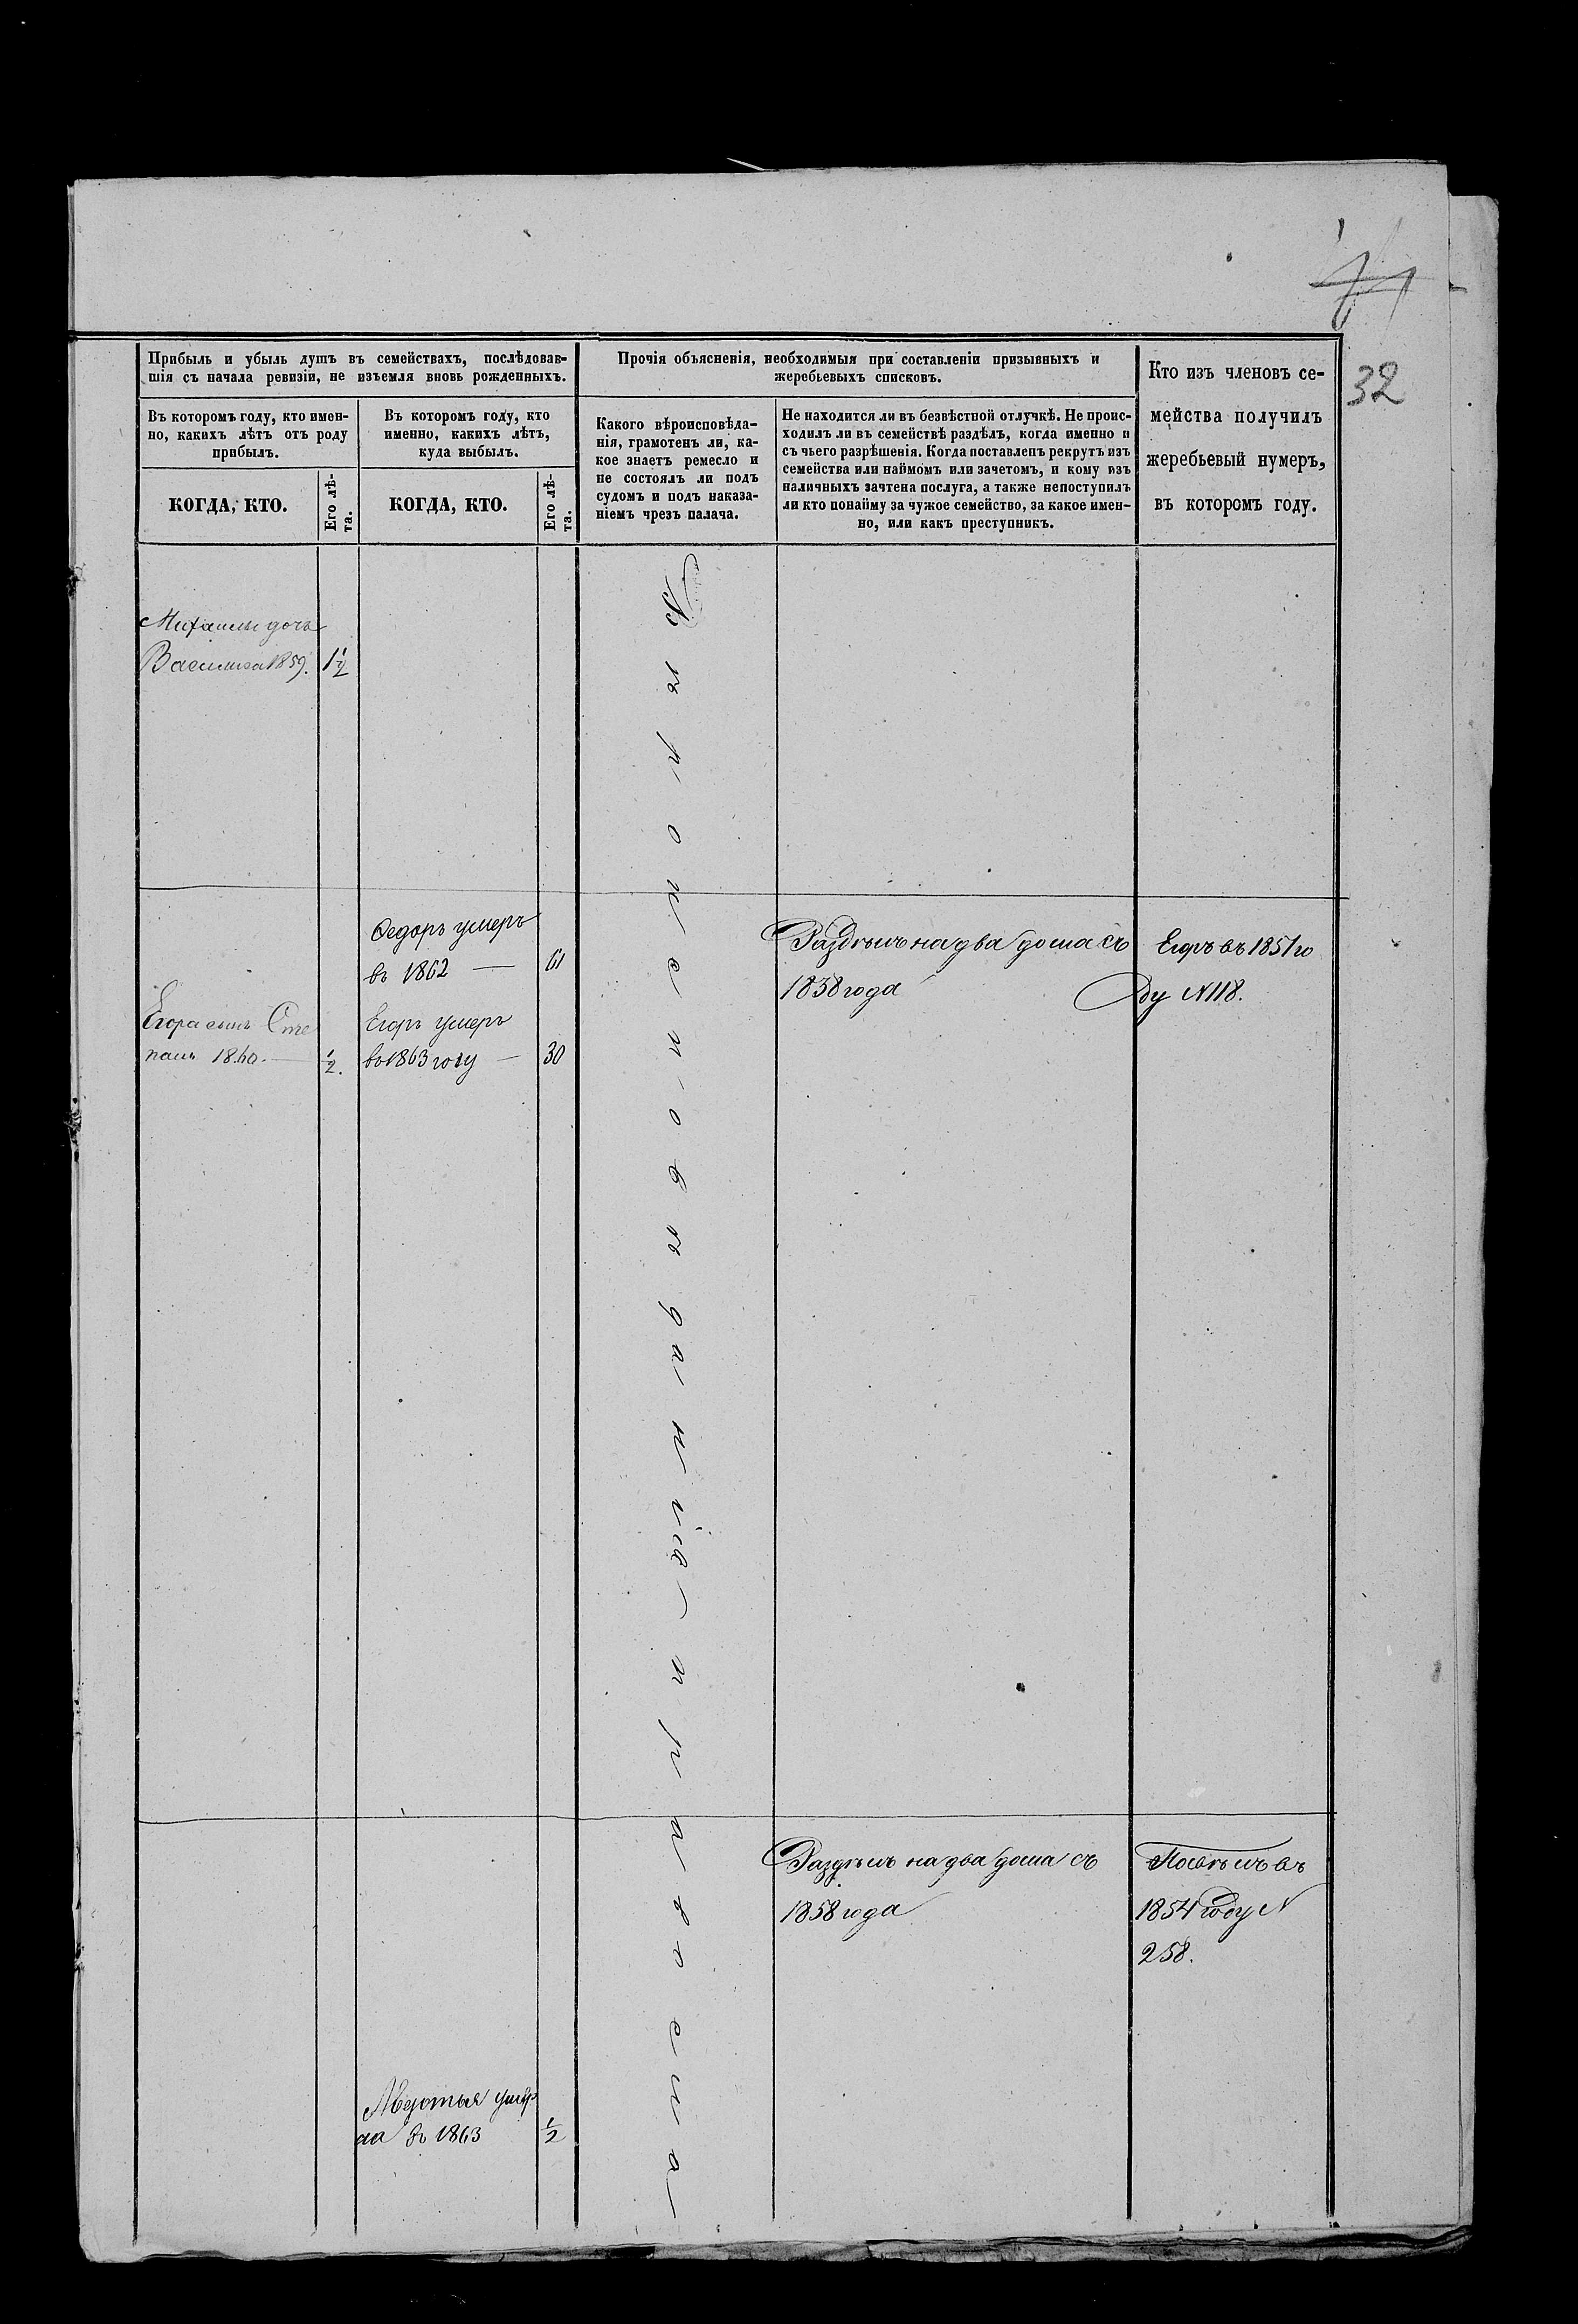 32
Прибыль и убыль душъ въ семействахъ, послѣдовав-
шія съ начала ревизіи, не изъемля вновь рожденныхъ.
Въ которомъ году, кто имен-
но, какихъ лѣтъ отъ роду
прибылъ.
Въ которомъ году, кто
именно, какихъ лѣтъ,
куда выбылъ.
КОГДА, КТО.
Его лѣ-
та.
КОГДА, КТО.
Его лѣ-
та.
Прочія объясненія, необходимыя при составленіи призывныхъ и
жеребьевыхъ списковъ.
Какого вѣроисповѣда-
нія, грамотенъ ли, ка-
кое знаетъ ремесло и
не состоялъ ли подъ
судомъ и подъ наказа-
ніемъ чрезъ палача.
Не находится ли въ безвѣстной отлучкѣ. Не проис-
ходилъ ли въ семействѣ раздѣлъ, когда именно и
съ чьего разрѣшенія. Когда поставленъ рекрутъ изъ
семейства или наймомъ или зачетомъ, и кому изъ
наличныхъ зачтена послуга, а также непоступилъ
ли кто понайму за чужое семейство, за какое имен-
но, или какъ преступникъ.
Кто изъ членовъ се-
мейства получилъ
жеребьевый нумеръ,
въ которомъ году.
Михаилы дочь
Василиса 1859. 1½
Федоръ умеръ
въ 1862 — 61
Егора сынъ Сте
панъ 1860. — ½.
Егоръ умеръ
въ 1863 году — 30
Раздѣлъ на два дома съ
1858 года
Егоръ въ 1851 го
ду N 118.
Раздѣлъ на два дома съ
1858 года
въ
1854 году N
258.
Авдотья умер
ла въ 1863 ½